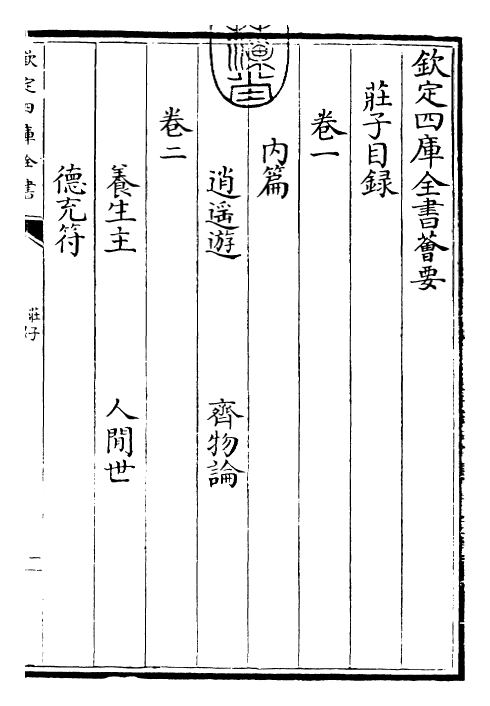 欽定四庫全書薈要
莊子目録
卷一
内篇
逍遥遊 齊物論
卷二
養生主 人間世
德充符
欽定四庫全書
莊子